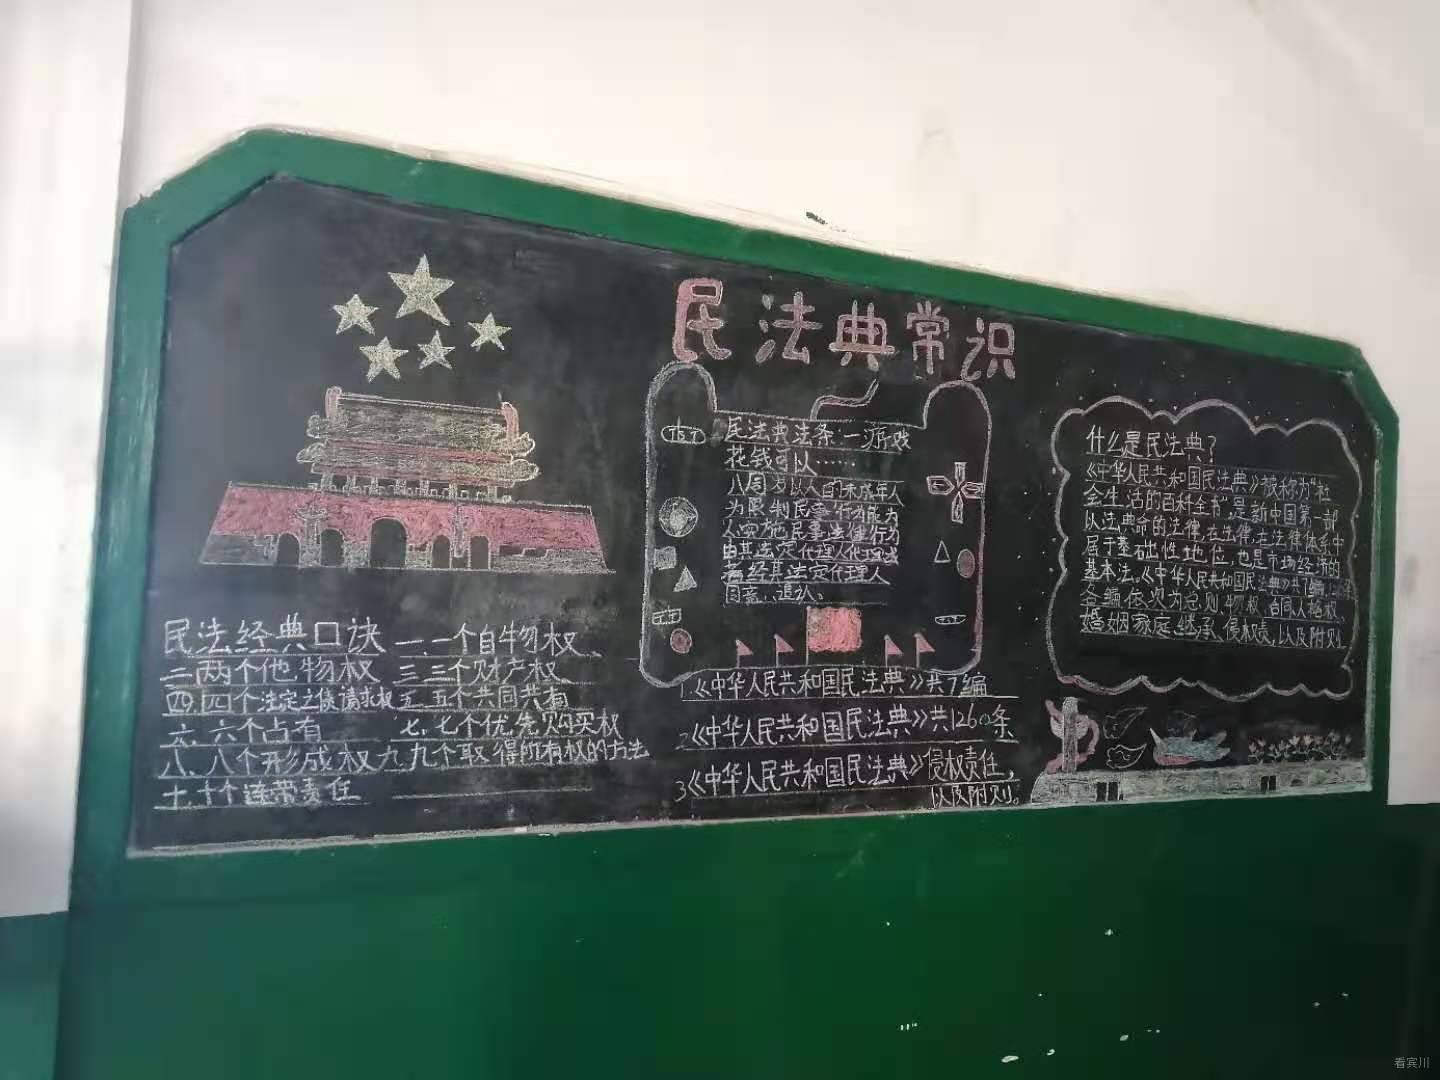 民法典常识
民法经典口诀 一、一个自物权、
二、两个他物权 三、三个财产权、
四、四个法定之债请求权 五、五个共同共有
六、六个占有 七、七个优先购买权
八、八个形成权 九、九个取得所有权的方法
十、十个连带责任
民法典法条:一游戏
花钱可以……
八周岁以上的未成年人
为限制民事行为能力
人实施民事法律行为
由其法定代理人代理或
者经其法定代理人
同意、追认、
1.《中华人民共和国民法典》共7编
2《中华人民共和国民法典》共1260条
3《中华人民共和国民法典》侵权责任,
以及附则。
什么是民法典?
《中华人民共和国民法典》被称为“社
会生活的百科全书”,是新中国第一部
以法典命的法律,在法律,在法律体系中
属于基础性地位,也是市场经济的
基本法。《中华人民共和国民法典》共7编
各编依次为总则、物权、合同、人格权、
婚姻家庭、继承、侵权责,以及附则
看宾川